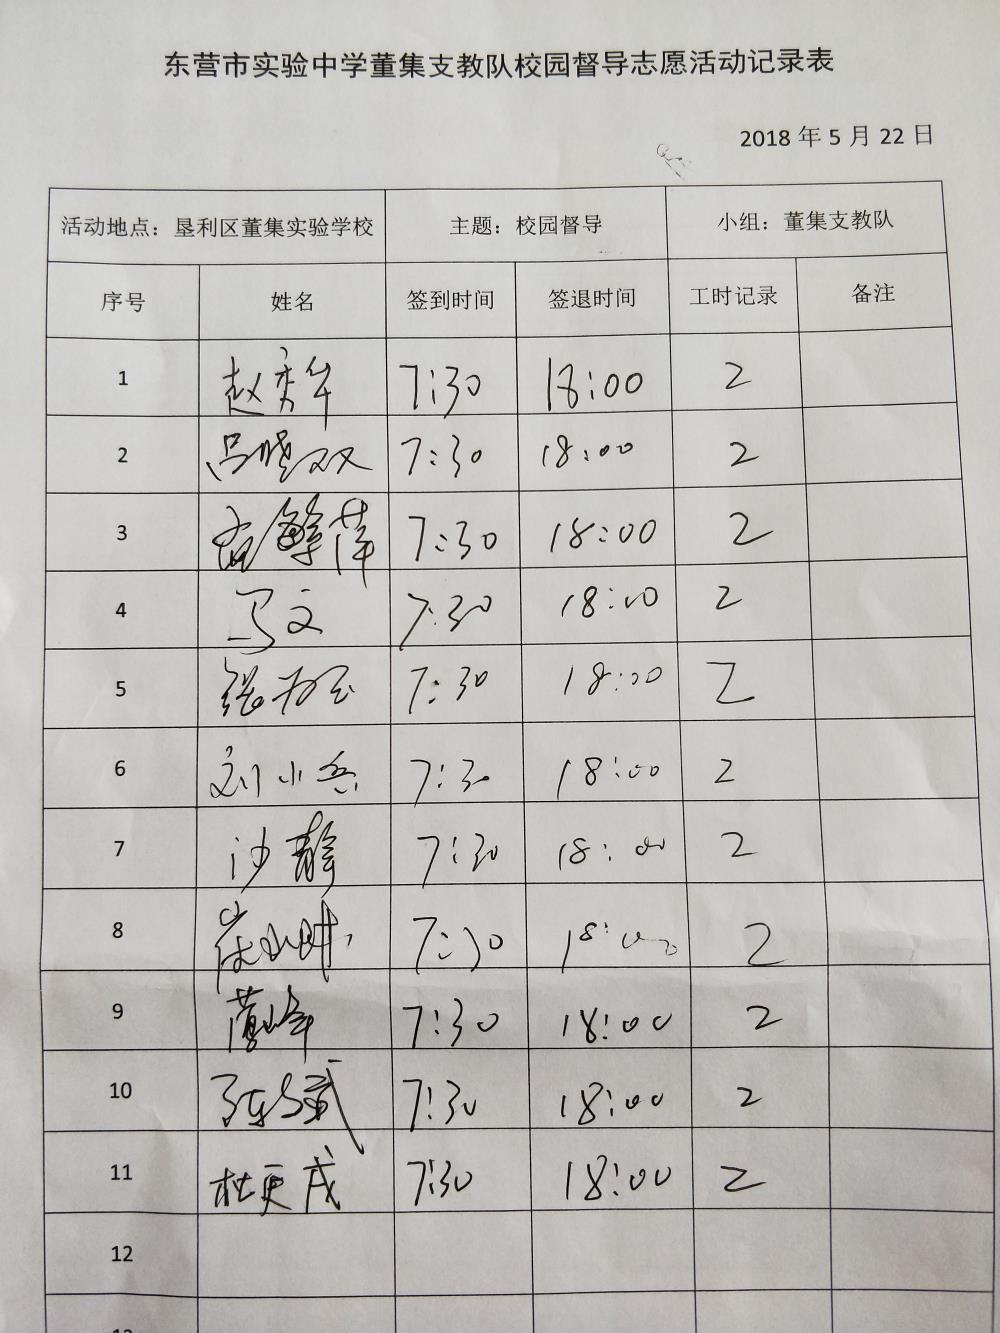 东营市实验中学董集支教队校园督导志愿活动记录表
2018 年 5 月 22 日
活动地点：垦利区董集实验学校 主题：校园督导 小组：董集支教队
序号 姓名 签到时间 签退时间 工时记录 备注
1 赵奕华 7:30 18:00 2
2 吕晓双 7:30 18:00 2
3 7:30 18:00 2
4 马文 7:30 18:00 2
5 张 7:30 18:00 2
6 刘小兵 7:30 18:00 2
7 沙静 7:30 18:00 2
8 7:30 18:00 2
9 峰 7:30 18:00 2
10 陈 斌 7:30 18:00 2
11 杜更戌 7:30 18:00 2
12